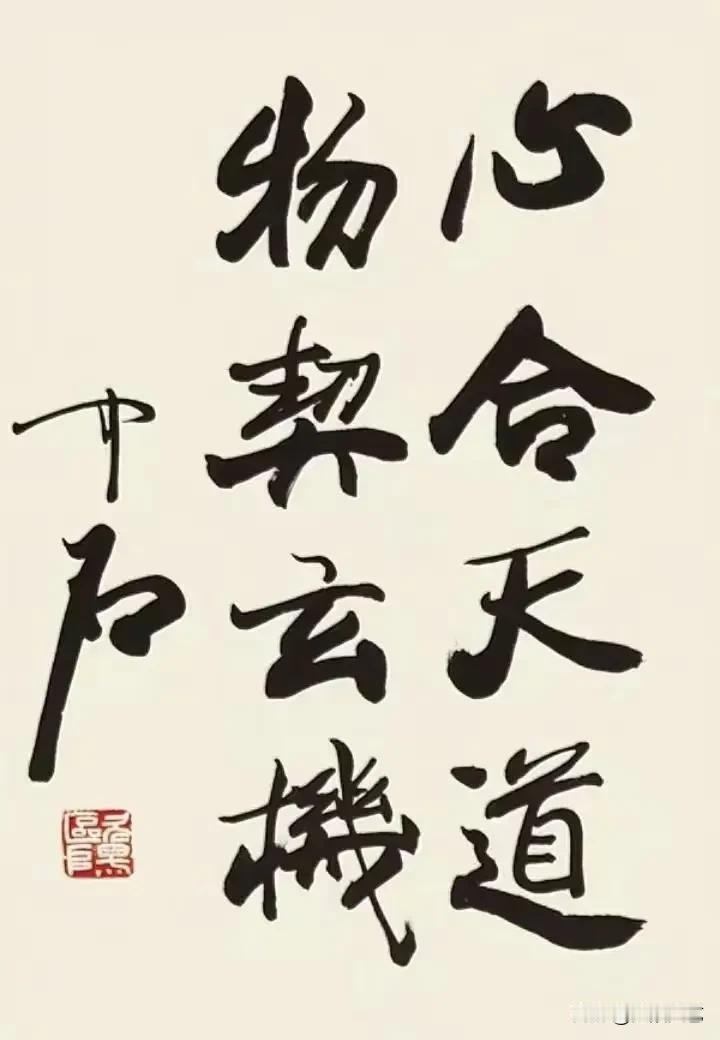 心合天道
物契玄機
中石